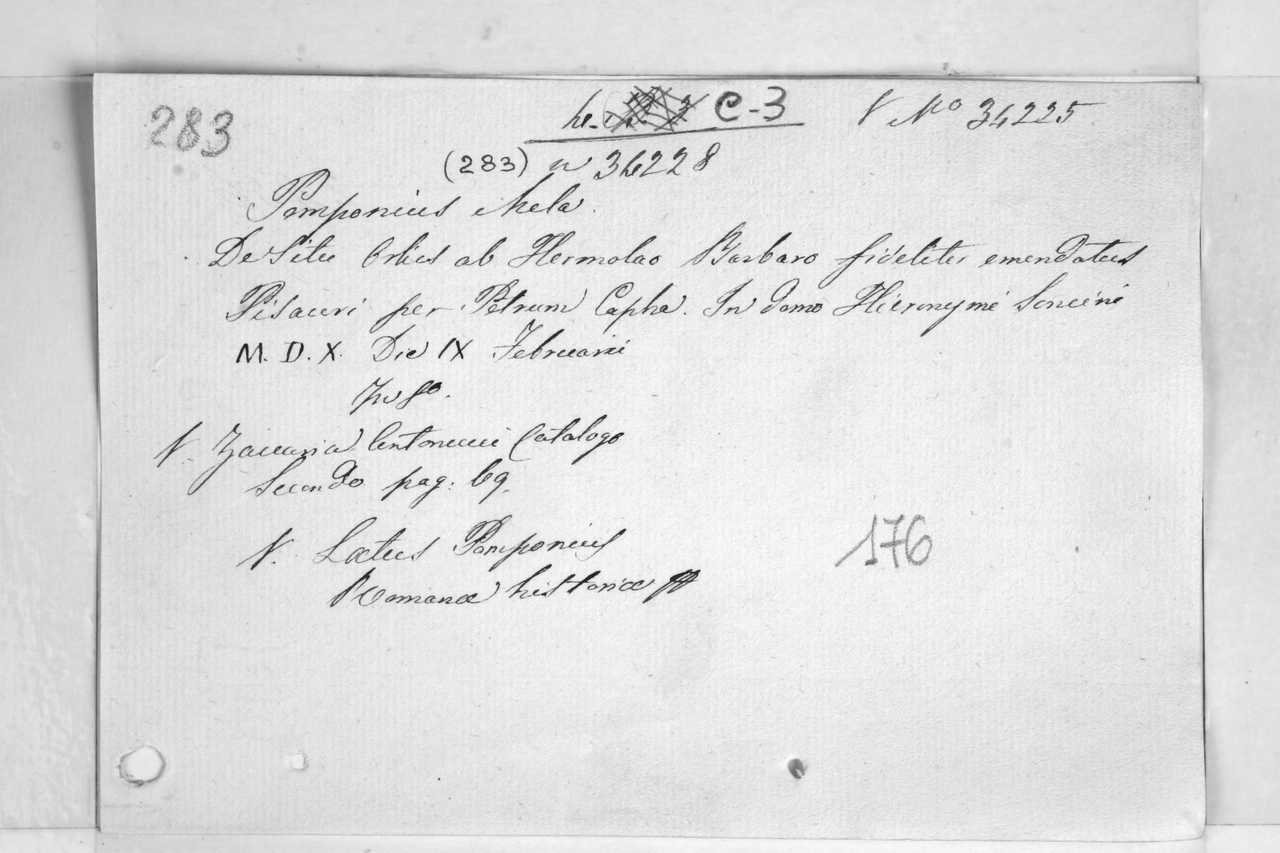 283 C-3 V No 34225
(283) n 34228
Pomponius Mela.
De Situ Orbis ab Hermolao Barbaro fideliter emendatus
Pisauri per Petrum Capha. In domo Hieronymi Soncini
M. D. X. Die IX Februarii
in fo.
V. Zaccaria Antonucci Catalogo
Secondo pag: 69.
V. Lætus Pomponius
Romanæ historiæ
176